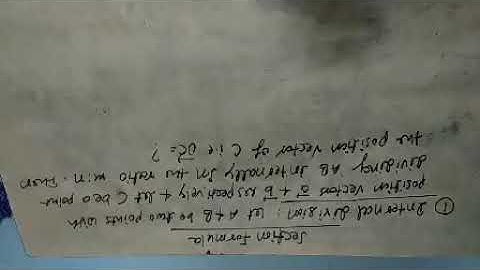 Section Formula
① Internal division: Let A & B be two points with
position vectors a⃗ & b⃗ respectively & let C be a point
dividing AB internally in the ratio m:n. Then
the position vector of C i.e OC⃗ = ?